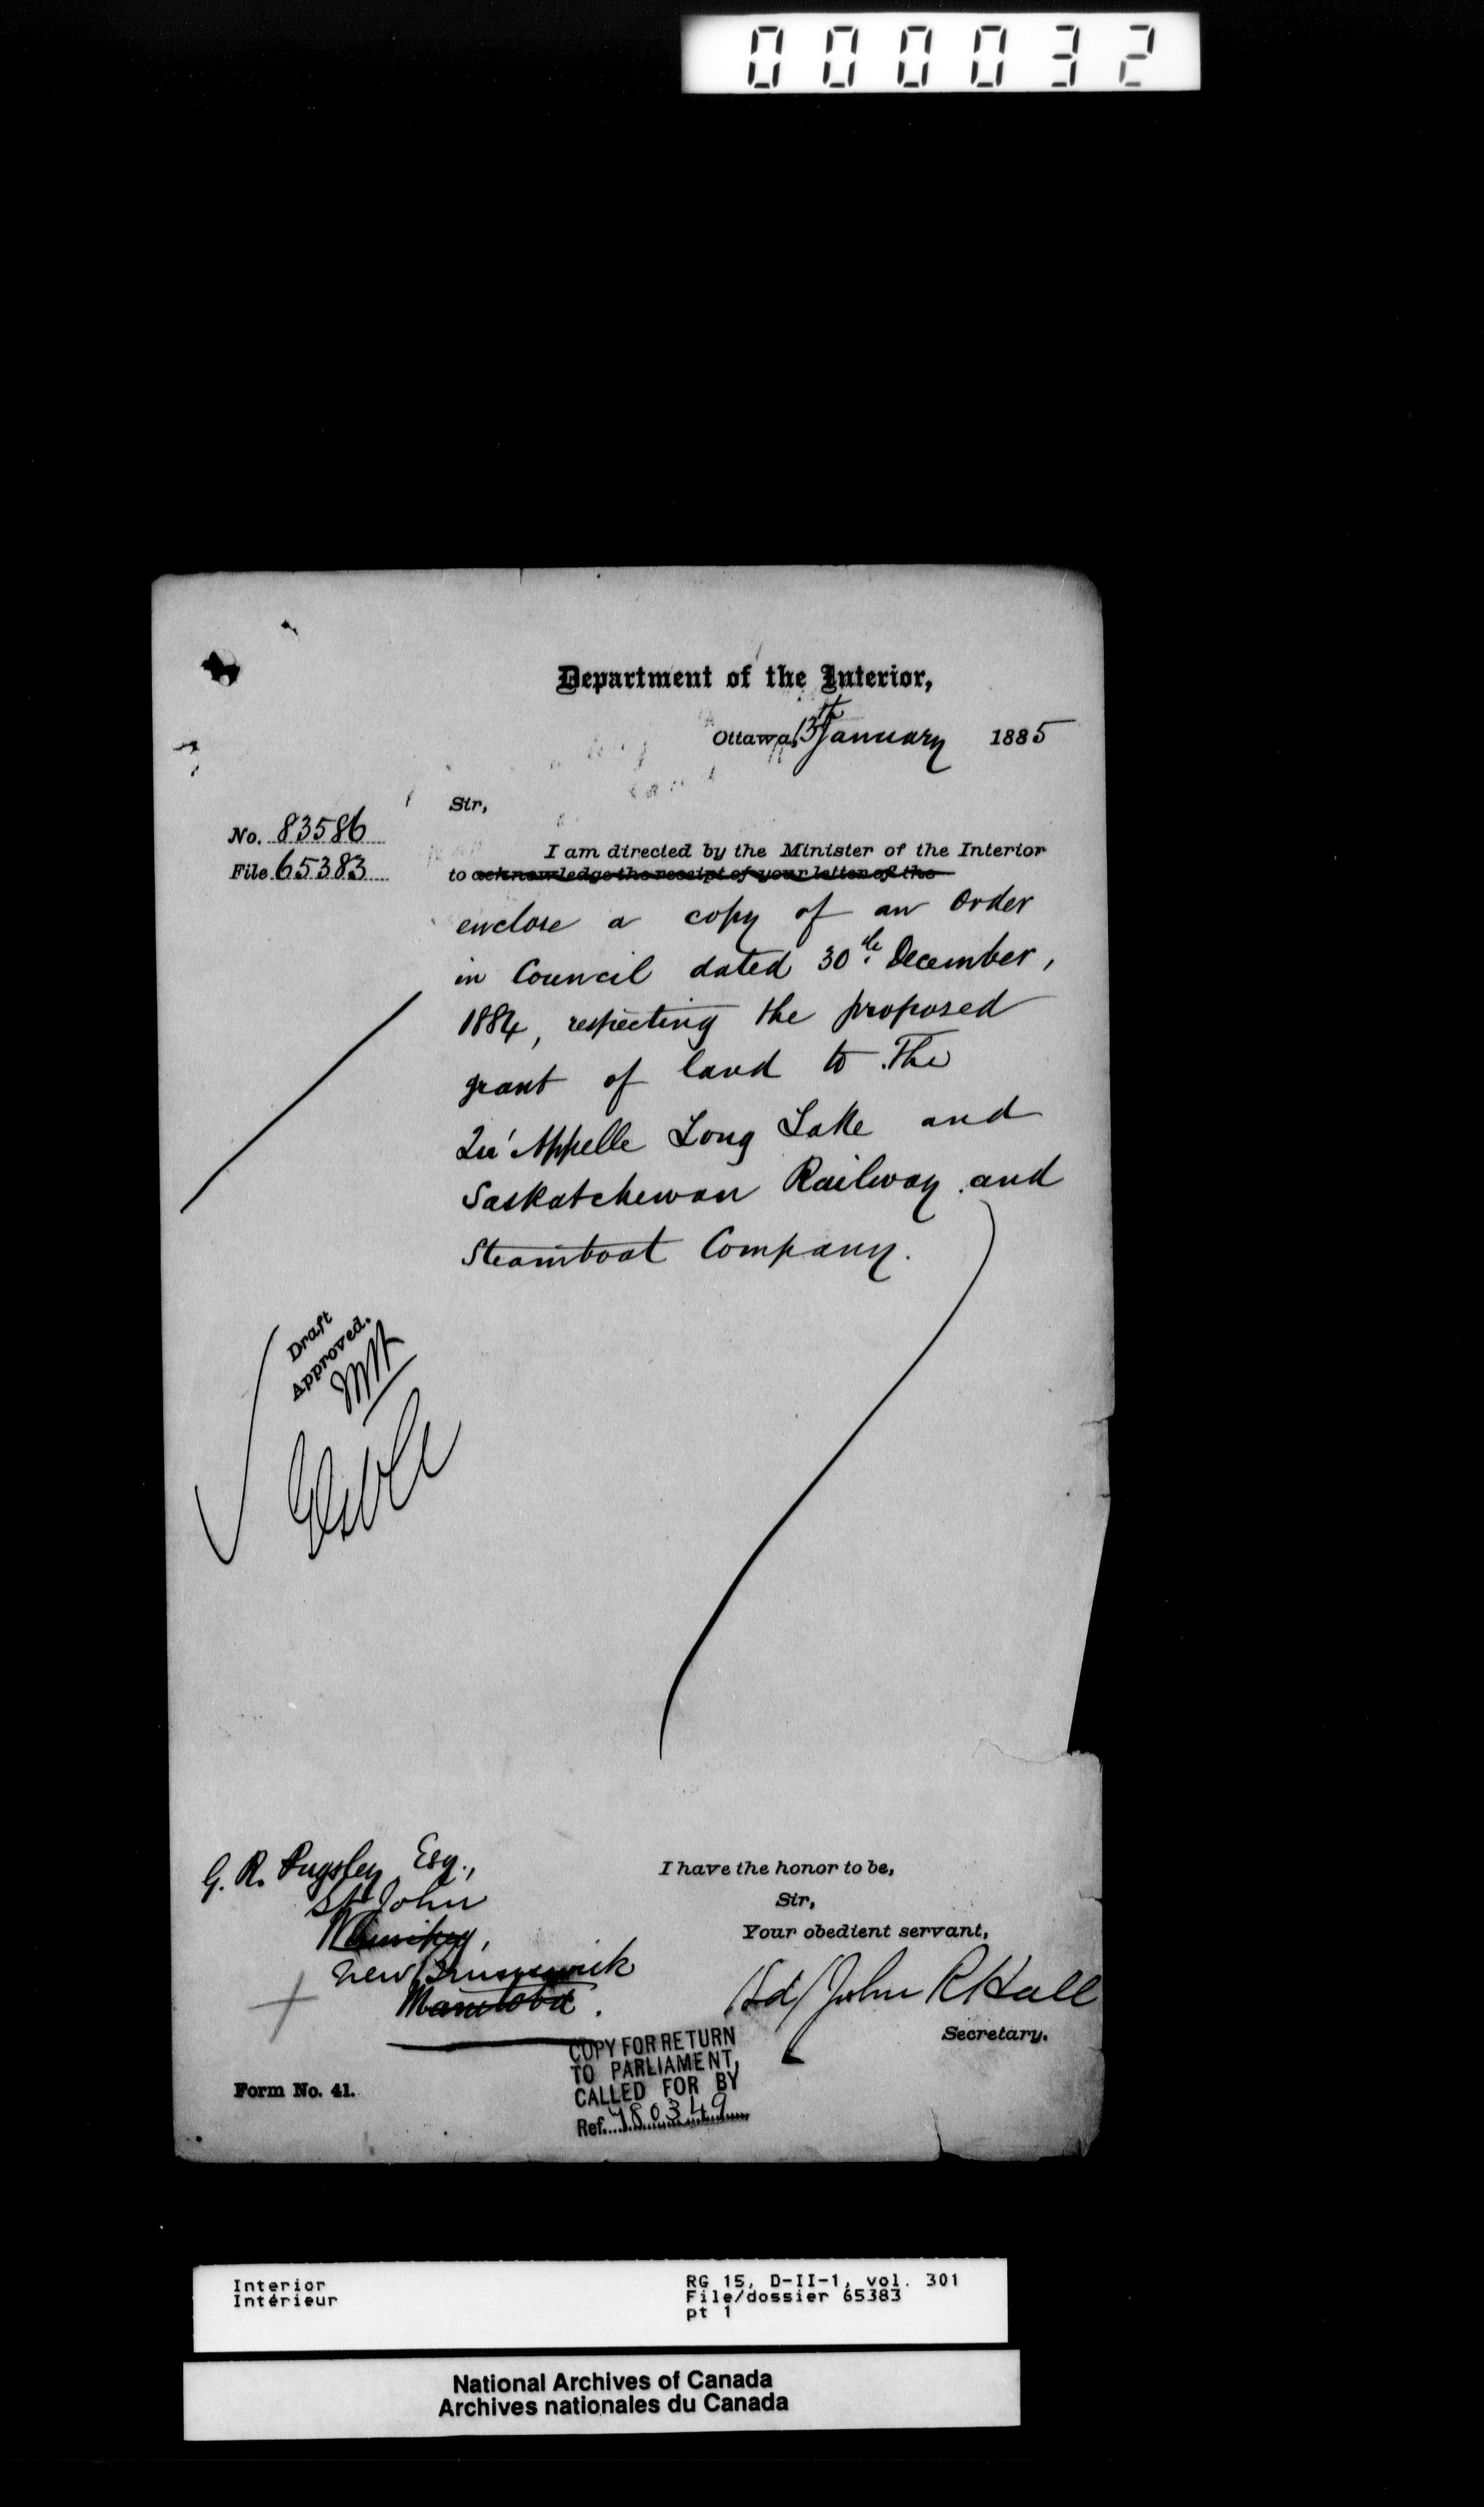 000032
Department of the Interior,
Ottawa, 13th January 1885
Sir,
No. 83586
File 65383
I am directed by the Minister of the Interior
to acknowledge the receipt of your letter of the
enclose a copy of an Order
in Council dated 30th December,
1884, respecting the proposed
grant of land to The
Qu'Appelle Long Lake and
Saskatchewan Railway and
Steamboat Company.
Draft
Approved.
G. R. Pugsley Esq.,
St John
Winnipeg,
New Brunswick
Manitoba.
I have the honor to be,
Sir,
Your obedient servant,
(Sd) John R Hall
Secretary.
COPY FOR RETURN
TO PARLIAMENT,
CALLED FOR BY
Ref. 780349
Form No. 41.
Interior
Intérieur
RG 15, D-II-1, vol. 301
File/dossier 65383
pt 1
National Archives of Canada
Archives nationales du Canada